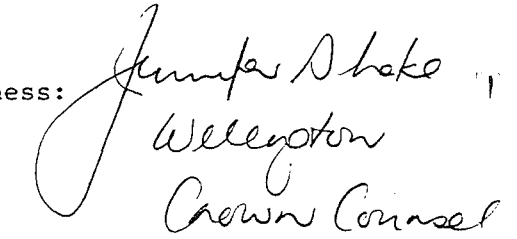 ness: Jennifer S hake
Wellington
Crown Counsel